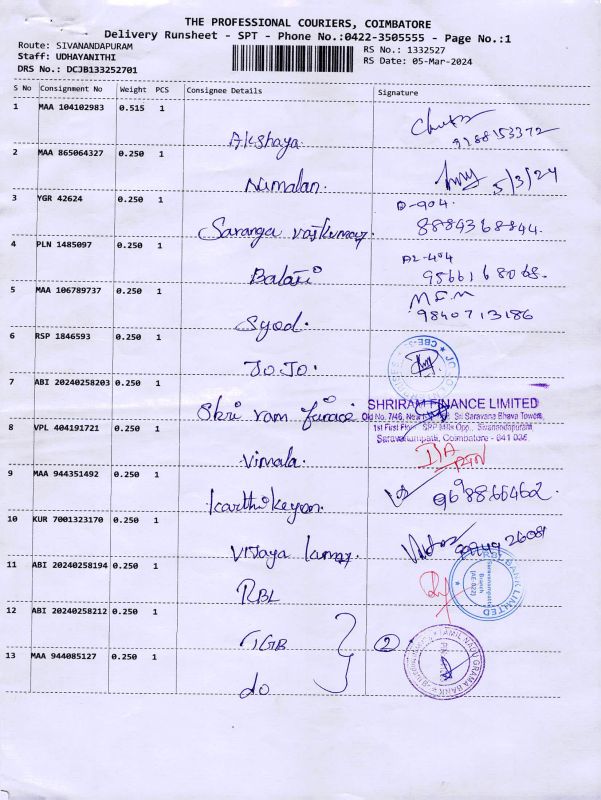 THE PROFESSIONAL COURIERS, COIMBATORE
Delivery Runsheet - SPT - Phone No.:0422-3505555 - Page No.:1
Route: SIVANANDAPURAM
RS No.: 1332527
Staff: UDHAYANITHI
RS Date: 05-Mar-2024
DRS No.: DCJB133252701
S No Consignment No Weight PCS Consignee Details Signature
1 MAA 104102983 0.515 1
Akshaya
9288153372
2 MAA 865064327 0.250 1
Nirmalan.
5/3/24
3 YGR 42624 0.250 1
D-904.
Saranga rajkumar.
8884368844.
4 PLN 1485097 0.250 1
A2-404
Balaji
9566168068.
5 MAA 106789737 0.250 1
M.F.M
9840713186
Syed.
6 RSP 1846593 0.250 1
JO.JO.
7 ABI 20240258203 0.250 1
SHRIRAM FINANCE LIMITED
Shri ram
Old No. 7/46, Sri Saravana Bhava Towers,
8 VPL 404191721 0.250 1
1st First SRP Mills Opp., Sivanandapuram
Saravanampatti, Coimbatore - 641 035.
Vimala.
9 MAA 944351492 0.250 1
Karthikeyan.
10 KUR 7001323170 0.250 1
Vijaya kumar.
11 ABI 20240258194 0.250 1
RBL
RBL BANK LIMITED
Saravanampatti
Branch
12 ABI 20240258212 0.250 1
TGB
2
TAMIL NADU GRAMA BANK
13 MAA 944085127 0.250 1
do